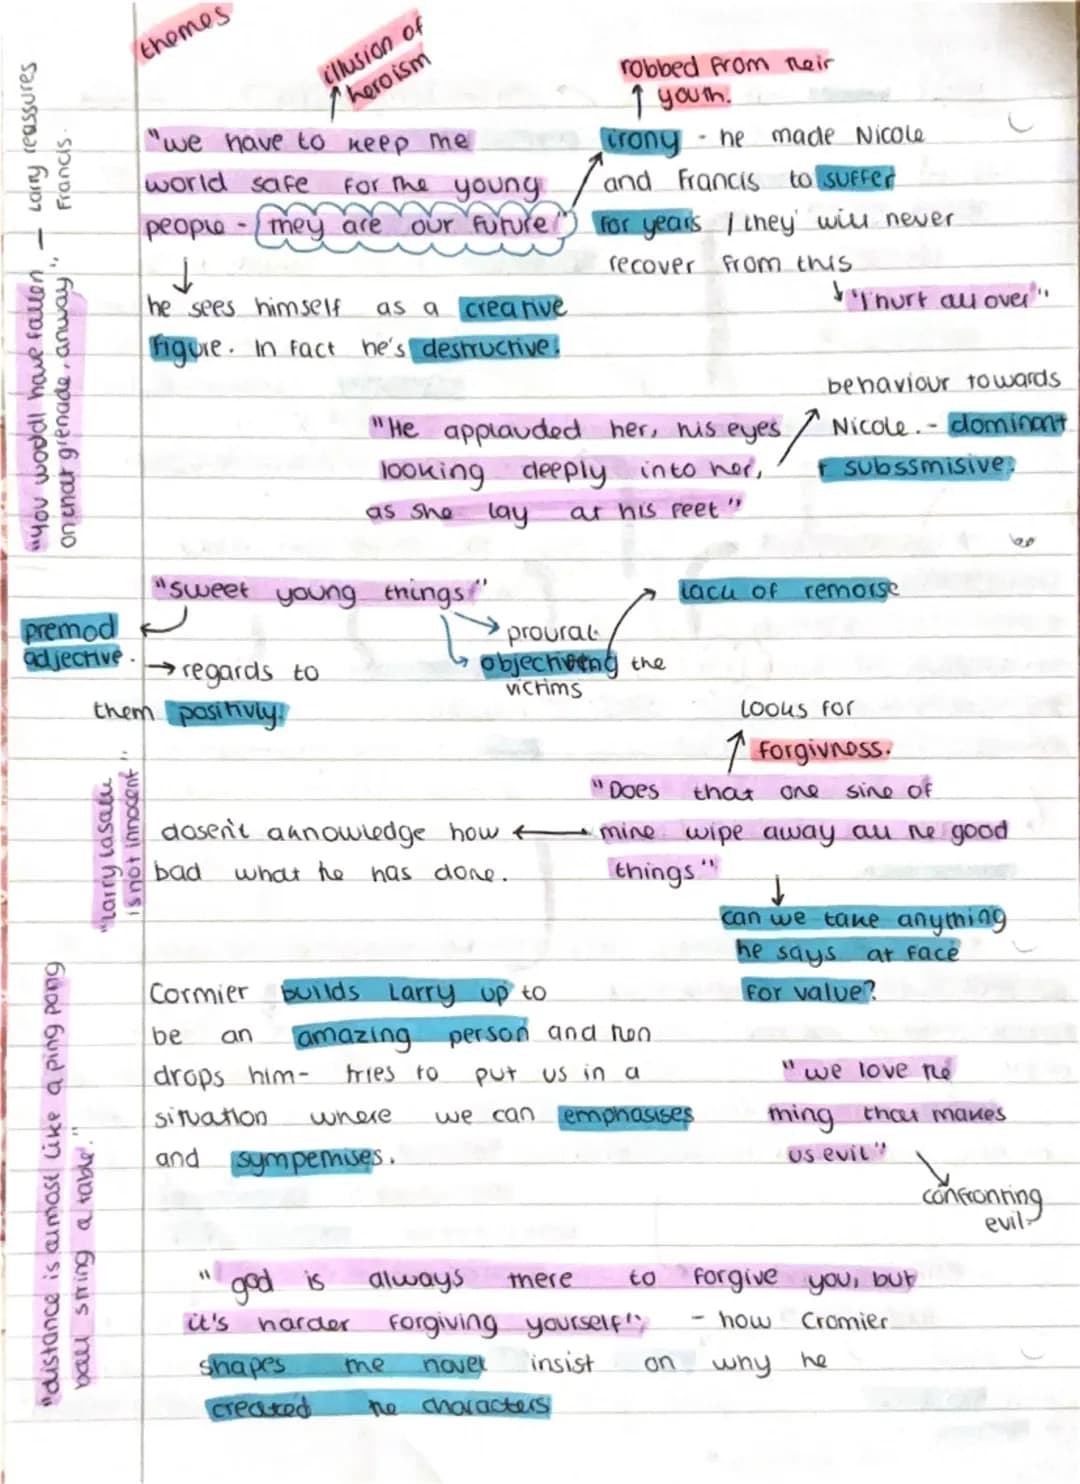 themes
illusion of
heroism
robbed from their
youth.
"we have to keep the
world safe for the young
people - they are our future"
irony - he made Nicole
and Francis to suffer
for years / they will never
recover from this
"I hurt all over"
he sees himself as a creative
figure. In fact he's destructive.
"you would have fallen - Larry reassures
on that grenade, anway" Francis.
"He applauded her, his eyes
looking deeply into her,
as she lay at his feet"
behaviour towards
Nicole. - dominant
+ subssmisive.
"sweet young things"
premod
adjective.
regards to
them positivly.
proural
objectiveing the
victims
lack of remorse
looks for
forgivness.
"Does that one sine of
mine wipe away all the good
things"
dosen't aknowledge how
bad what he has done.
"Larry Lasalle
is not innocent"
can we take anything
he says at face
for value?
Cormier builds Larry up to
be an amazing person and then
drops him- tries to put us in a
situation where we can emphasises
and sympethises.
"we love the
thing that makes
us evil"
confronting
evil
"distance is almost like a ping pong
ball string a table."
"god is always there to forgive you, but
it's harder forgiving yourself" - how Cromier
shapes the novel insist on why he
created the characters